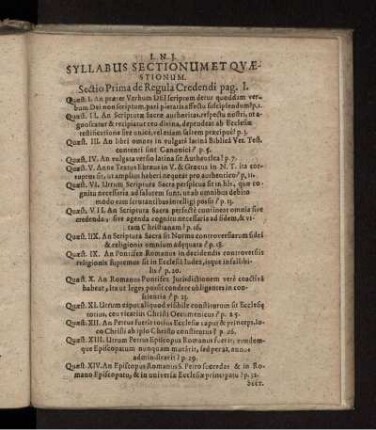 I. N. J.
SYLLABUS SECTIONUM ET QVÆ-
STIONUM.
Sectio Prima de Regula Credendi pag. I.
Quæst. I. An præter Verbum DEI scriptum detur quoddam ver-
bum Dei non scriptum, pari pietatis affectu suscipiendum? p. 1.
Quæst. II. An Scripturæ Sacræ authoritas, respectu nostri, ut a-
gnoscatur & recipiatur ceu divina, dependeat ab Ecclesiæ
testificatione sive unicè, vel etiam saltem præcipuè? p. 3.
Quæst. III. An libri omnes in vulgatâ latinâ Bibliâ Vet. Test.
contenti sint Canonici? p. 6.
Quæst. IV. An vulgata versio latina sit Authentica? p. 7.
Quæst. V. Anne Textus Ebræus in V. & Græcus in N. T. ita cor-
ruptus sit, ut amplius haberi nequeat pro authentico? p. 11.
Quæst. VI. Utrum Scriptura Sacra perspicua sit in his, quæ co-
gnitu necessaria ad salutem sunt, ut ab omnibus debito
modo eam scrutantibus intelligi possit? p. 13.
Quæst. VII. An Scriptura Sacra perfectè contineat omnia sive
credenda, sive agenda cognitu necessaria ad fidem, & vi-
tam Christianam? p. 16.
Quæst. IIX. An Scriptura Sacra sit Norma controversiarum fidei
& religionis omnium adæquata? p. 18.
Quæst. IX. An Pontifex Romanus in decidendis controversiis
religionis supremus sit in Ecclesia Iudex, isque infallibi-
lis? p. 20.
Quæst X. An Romanus Pontifex Jurisdictionem verè coactivâ
habeat, ita ut leges possit condere obligantes in con-
scientia? p. 23.
Quæst. XI. Utrum caput aliquod visibile constitutum sit Ecclesiæ
totius, ceu vicarius Christi Oecumenicus? p. 25.
Quæst. XII. An Petrus fuerit totius Ecclesiæ caput & princeps, lo-
co Christi ab ipso Christo constitutus? p. 26.
Quæst. XIII. Utrum Petrus Episcopus Romanus fuerit; eundem-
que Episcopatum nunquam mutârit, sed per 25. annos
administrarit? p. 29.
Quæst. XIV. An Episcopus Romanus S. Petro succedat & in Ro-
mano Episcopatu, & in universæ Ecclesiæ principatu? p. 32.